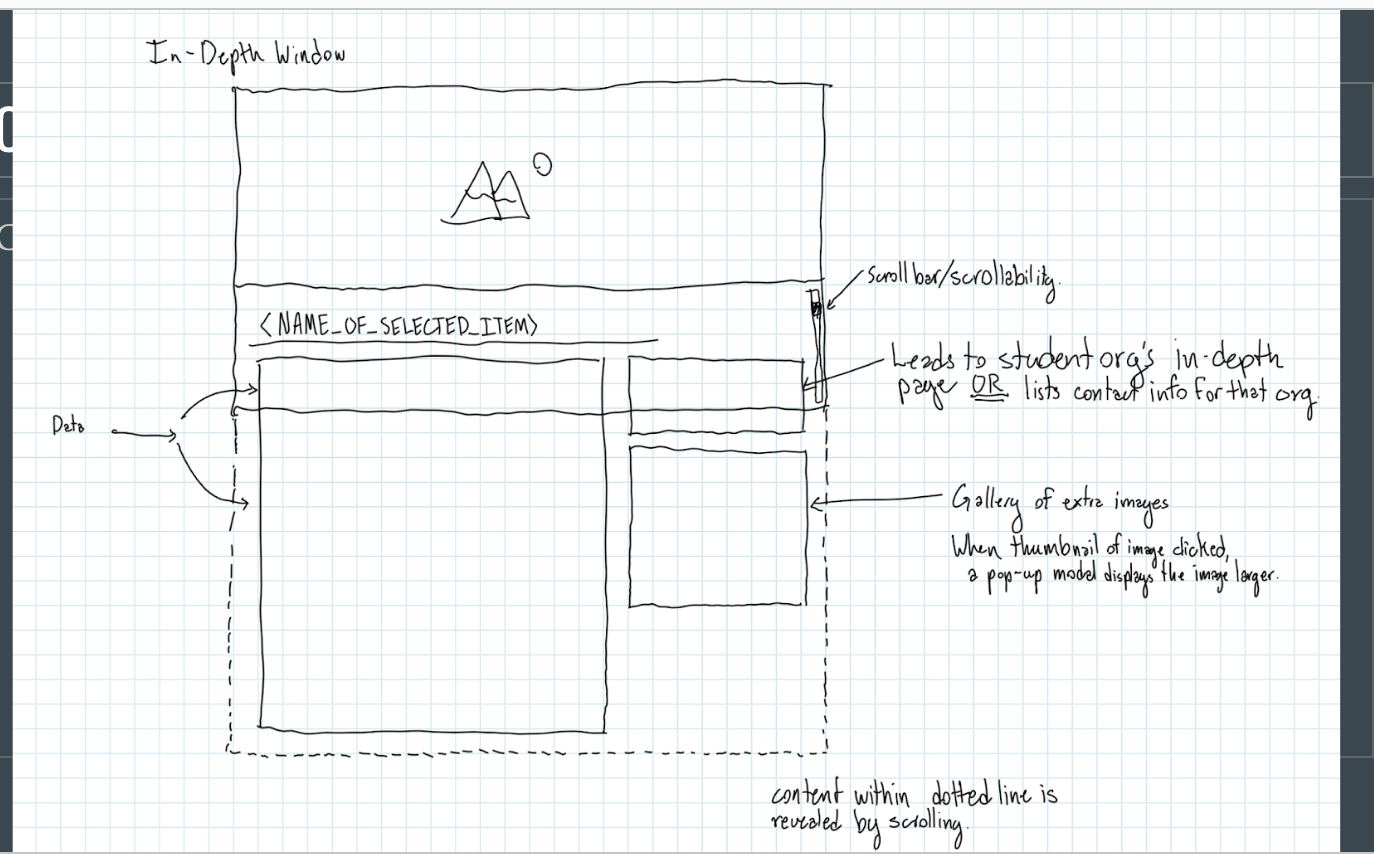 In-Depth Window
Scroll bar/scrollability.
<NAME_OF_SELECTED_ITEM>
Leads to student org's in-depth
page OR lists contact info for that org.
Data
Gallery of extra images
When thumbnail of image clicked,
a pop-up model displays the image larger.
content within dotted line is
revealed by scrolling.